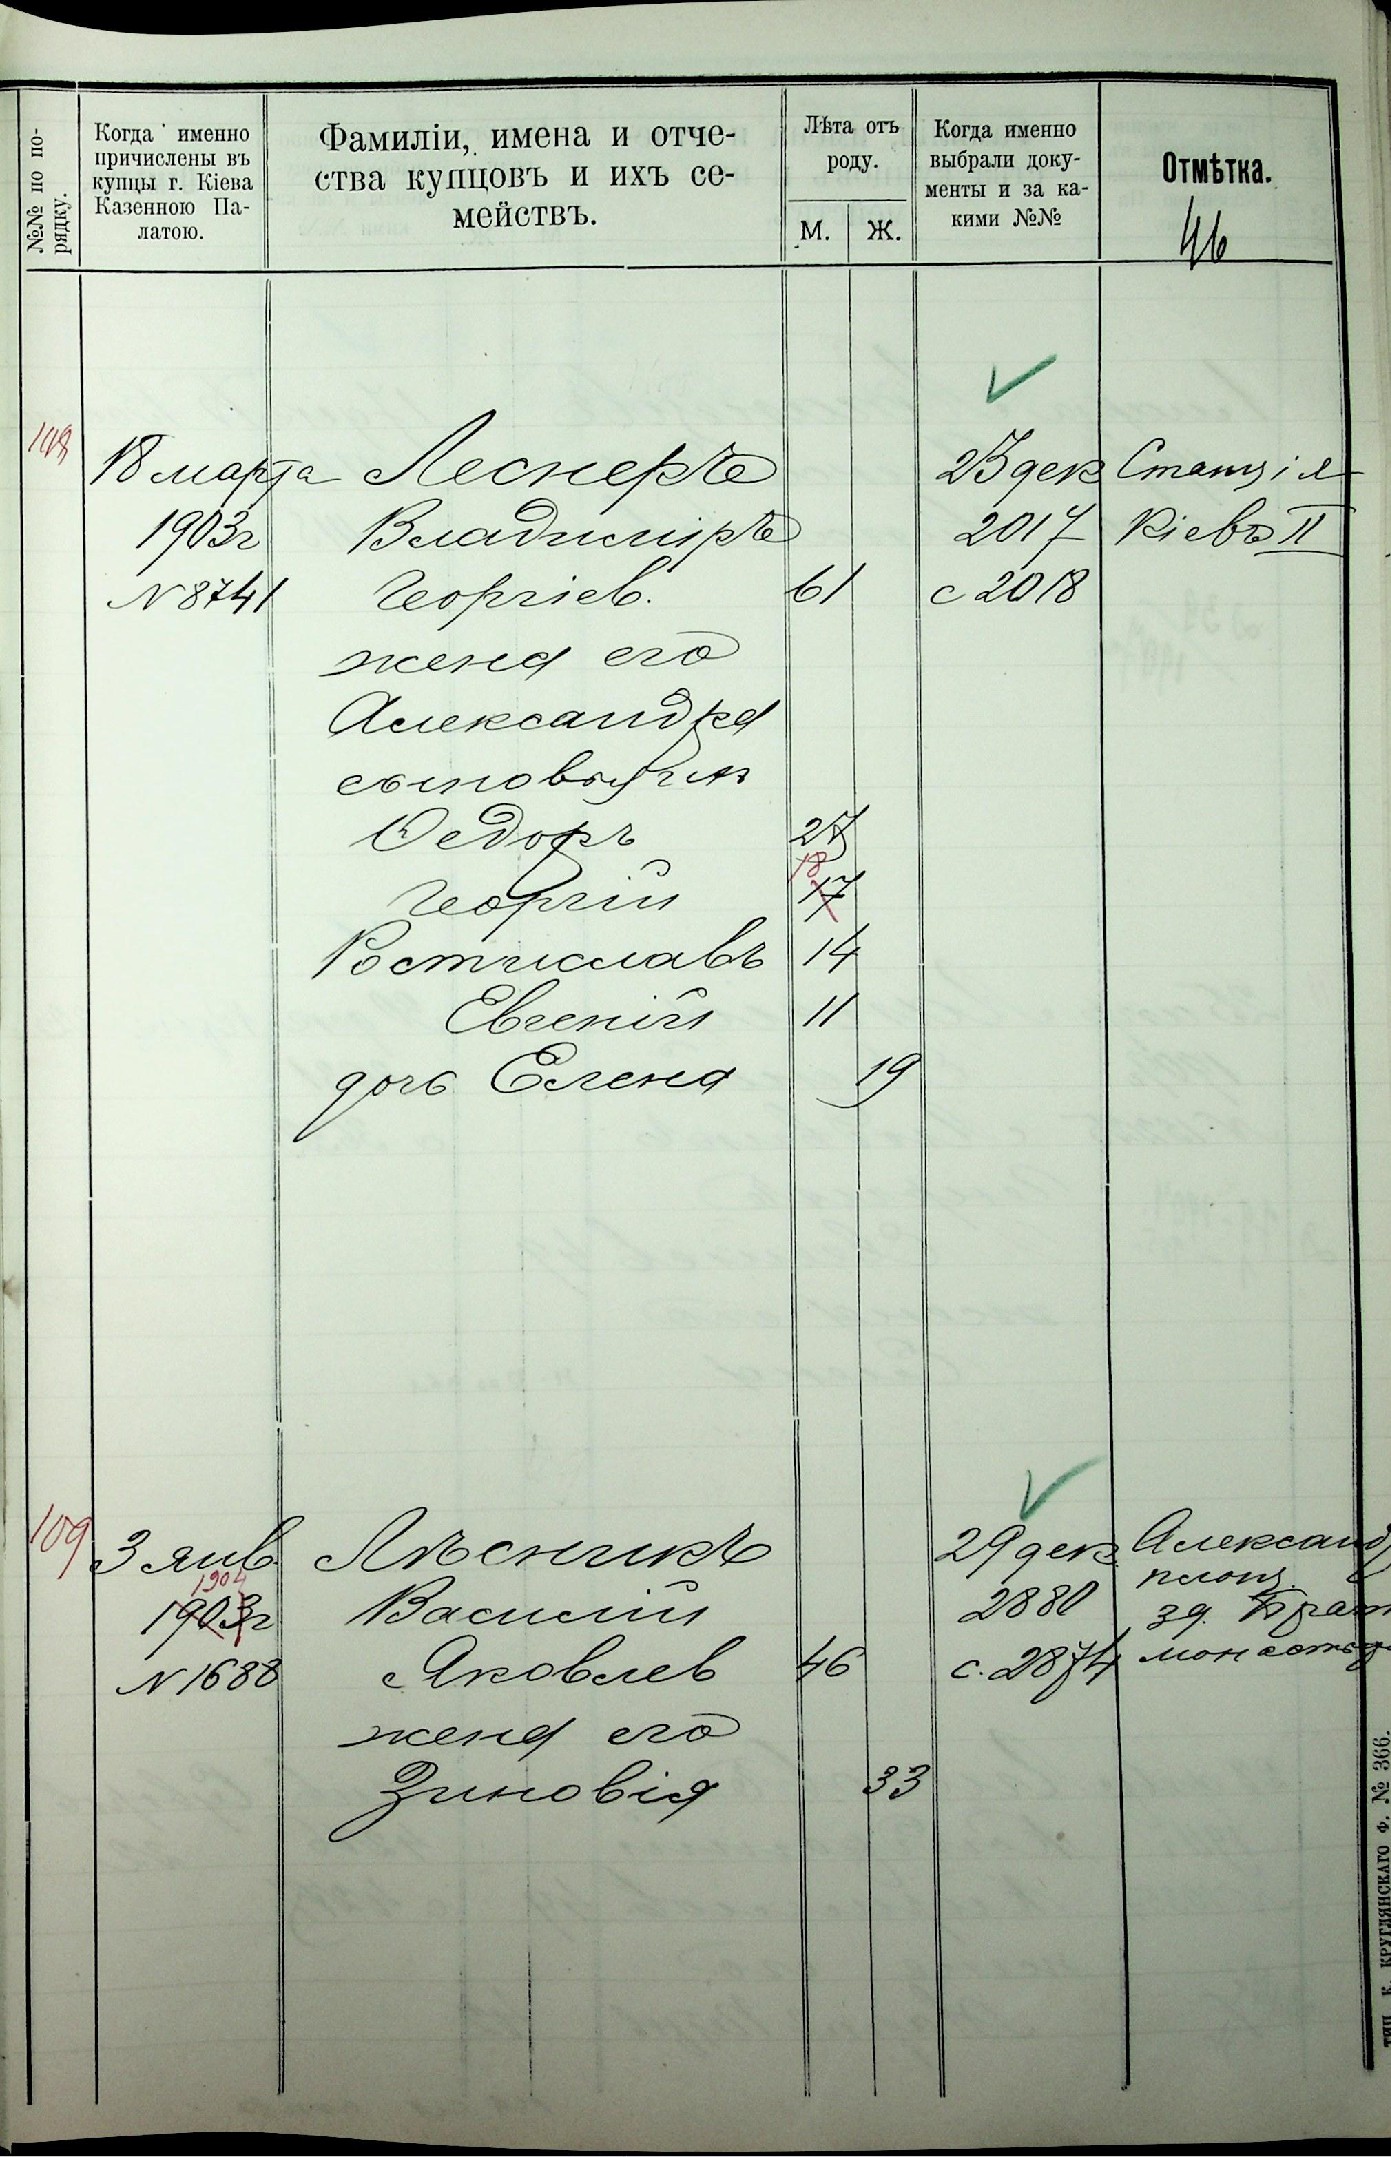 №№ по по-
рядку.
Когда именно
причислены въ
купцы г. Кіева
Казенною Па-
латою.
Фамиліи, имена и отче-
ства купцовъ и ихъ се-
мействъ.
Лѣта отъ
роду.
М. Ж.
Когда именно
выбрали доку-
менты и за ка-
кими №№
Отмѣтка.
46
108
18 марта Леснеръ 23 дек Станція
1903г Владиміръ 2017 Кіевъ II
N 8741 Георгіев. 61 с 2018
жена его
Александра
сыновья ихъ
Федоръ 27
Георгій 18 17
Ростиславъ 14
Евгеній 11
дочь Елена 19
109
3 янв Лѣсникъ 29 дек Александ
площ.
1904
1903г Василій 2880 зд. Брат
N 1688 Яковлев 46 с. 2874 монастыр
жена его
Зиновія 33
ТИП. К. КРУГЛЯНСКАГО Ф. № 366.